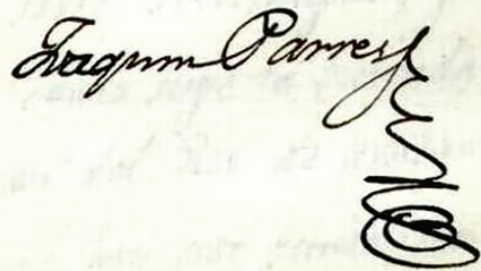 Joaquim Parres